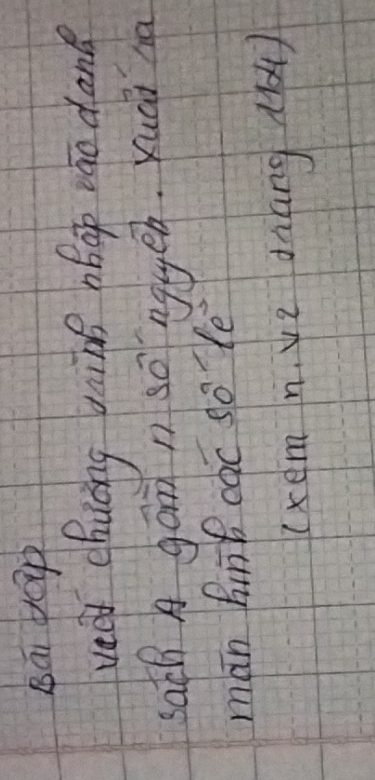 Bài tập
Viết chương trình nhập vào danh
sách A gồm n số nguyên. Xuất ra
màn hình các số lẻ
(xem n.v2 trang 124)